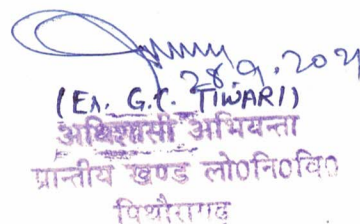 28.9.2021
(Er. G.C. TIWARI)
अधिशासी अभियन्ता
प्रान्तीय खण्ड लो0नि0वि0
पिथौरागढ़